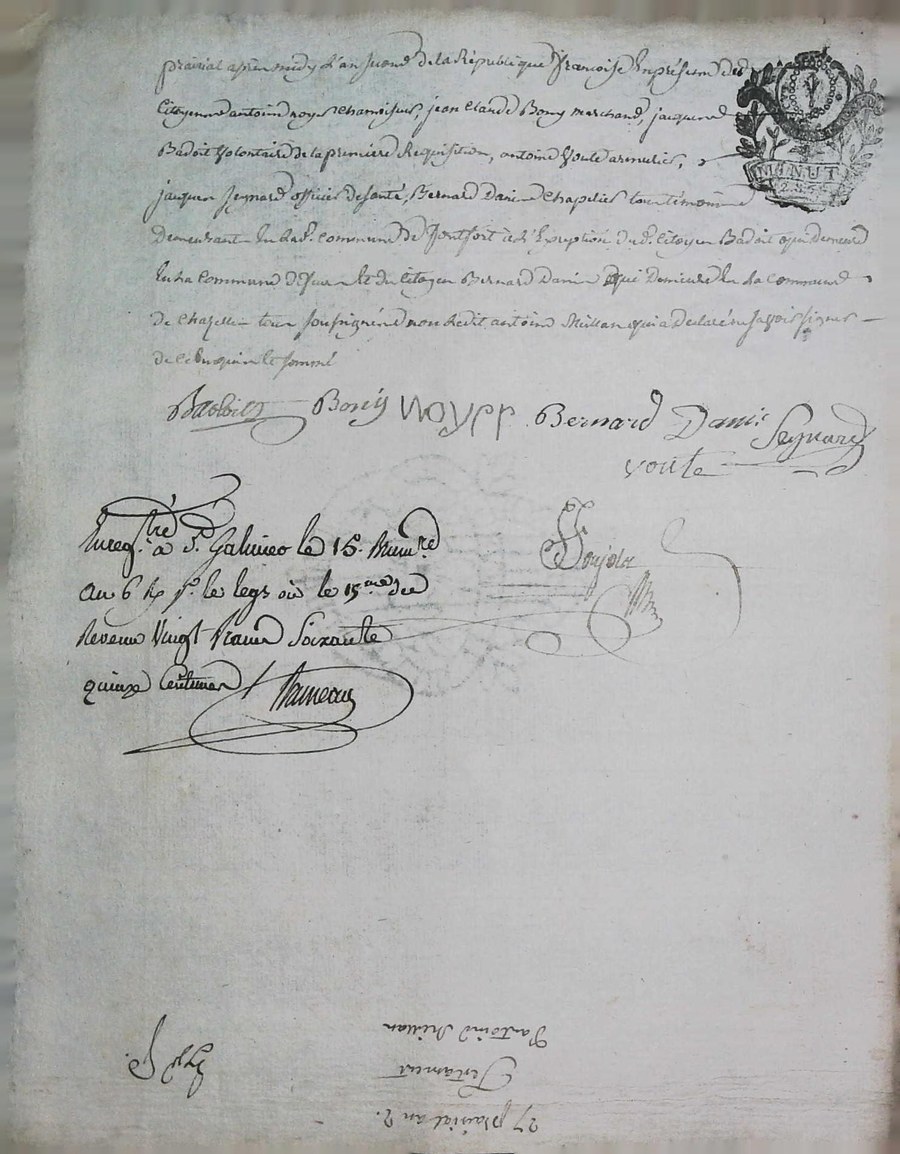 prairial après midy l'an second de la République françoise En présence des
Citoyens antoine noyer Chamoiseur, jean Claude Bony marchand, jacques
Badoit Volontaire de la première Requisition, antoine Voute armurier,
jacques Seynard officier de santé, Bernard Danis Chapelier tous témoins
Demeurant En lad. commune de fontfort à l'Exeption dud. Citoyen Badoit qui Demeure
En la Commune de et du Citoyen Bernard Danis qui Demeure En la Commune
de Chazelle tous soussignés non ledit antoine qui a déclaré ne savoir signer
de ce Enquis et sommé
Badoit Bony noyer Bernard Danis Seynard
voute
Enreg.tré à S.t Galmier le 15.
au 6 R p.r le legs où le 15.me du
Revenu Vingt francs Soixante
quinze Centimes
MINUT
27 prairial an 2.
Testament
d'antoine